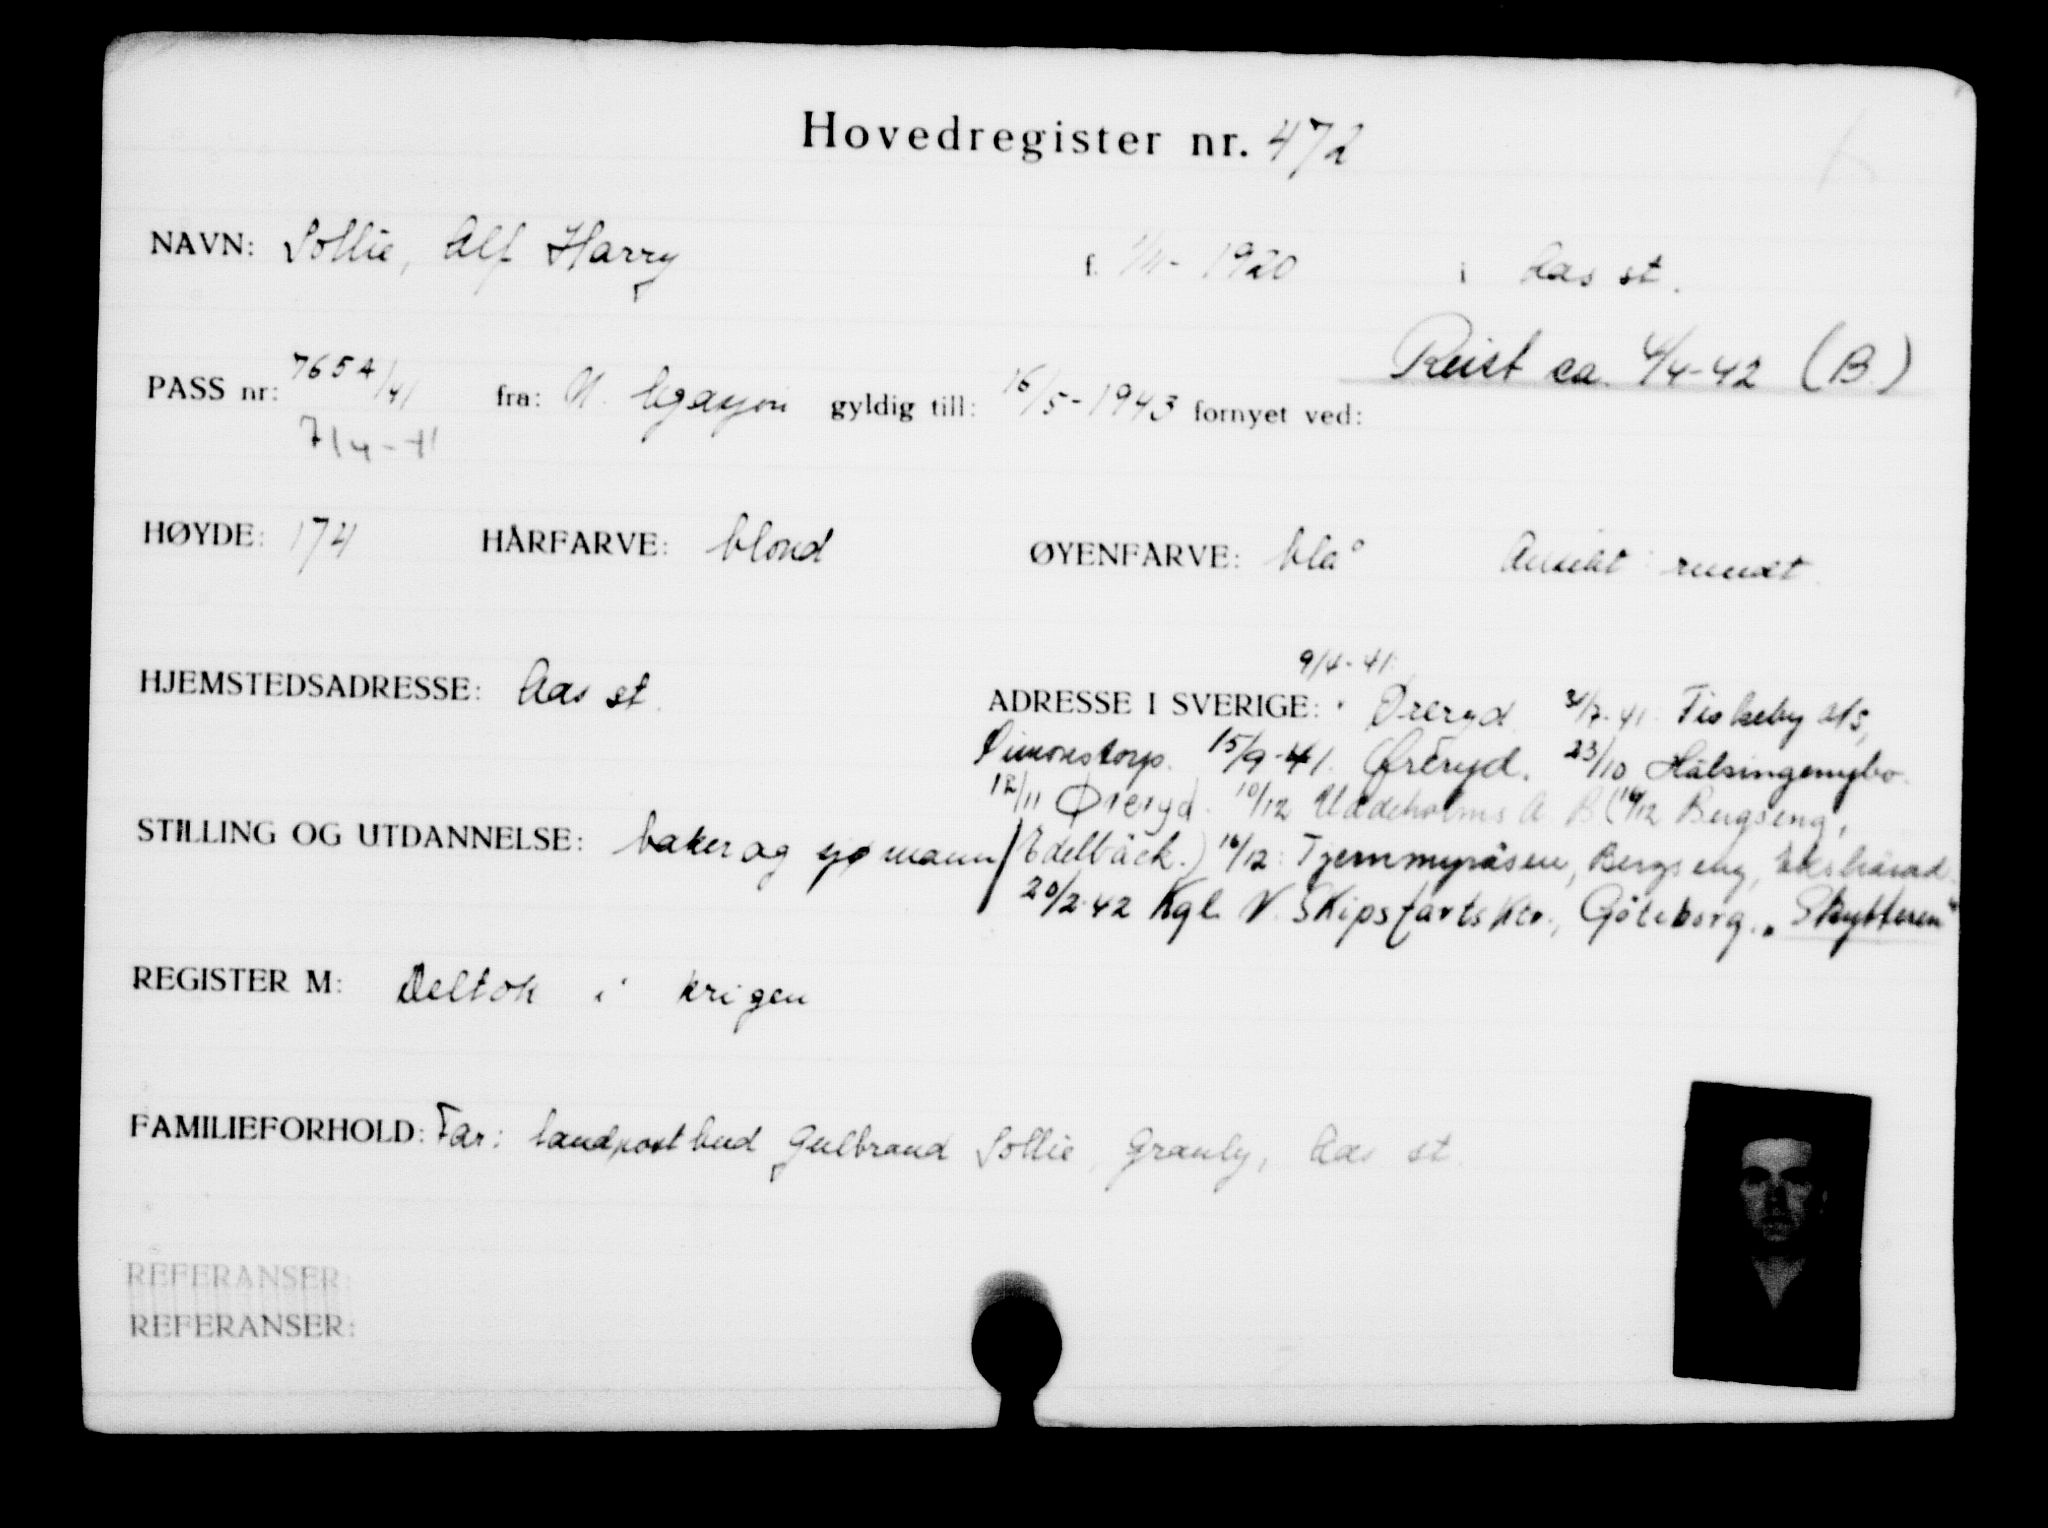 Hovedregister nr. 472
NAVN: Sollie, Alf Harry f. 1/4- 1920 i Aas st.
Reist ca. 4/4-42 (B.)
PASS nr: 7654/41 fra: N. legasjon gyldig till: 16/5-1943 fornyet ved:
7/4-41
HØYDE: 174 HÅRFARVE: blond ØYENFARVE: blå Ansikt: rundt.
9/4-41.
HJEMSTEDSADRESSE: Aas st. ADRESSE I SVERIGE: Øreryd. 31/7-41. Fiskeby A/S,
Simonstorp. 15/9-41. Øreryd. 23/10 Hälsingenybo.
12/11 Øreryd. 10/12 Uddeholms A B (14/12 Bergseng,
STILLING OG UTDANNELSE: baker og sjømann / Edelbäck.) 16/12: Tjernmyråsen, Bergseng, Ekshärad.
20/2-42 Kgl. N. Skipsfartsktr., Göteborg. "Skytteren"
REGISTER M: Deltok i krigen
FAMILIEFORHOLD: Far: landpostbud Gulbrand Sollie, Granly, Aas st.
REFERANSER:
REFERANSER: